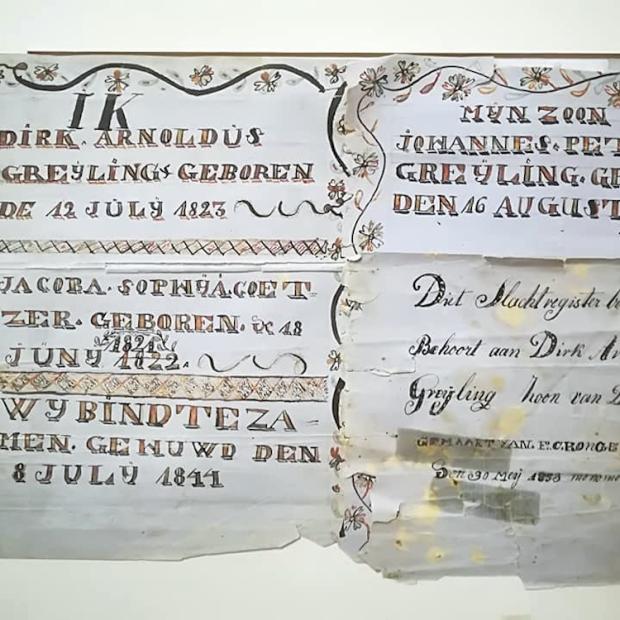 IK
DIRK. ARNOLDUS
GREYLINGS GEBOREN
DE 12 JULY 1823
JACOBA. SOPHYA. COET
ZER. GEBOREN. 18
1824
JUNY 1822.
WY BINDTE ZA-
MEN. GEHUWD DEN
8 JULY 1844
MYN ZOON
JOHANNES. PET
GREYLING. GE
DEN 16 AUGUST
Diet Slachtregister be
Behoort aan Dirk Ar
Greyling Zoon van D
GEMAAKT VAN. F. C. RONGE
Den 30 Mey 1853